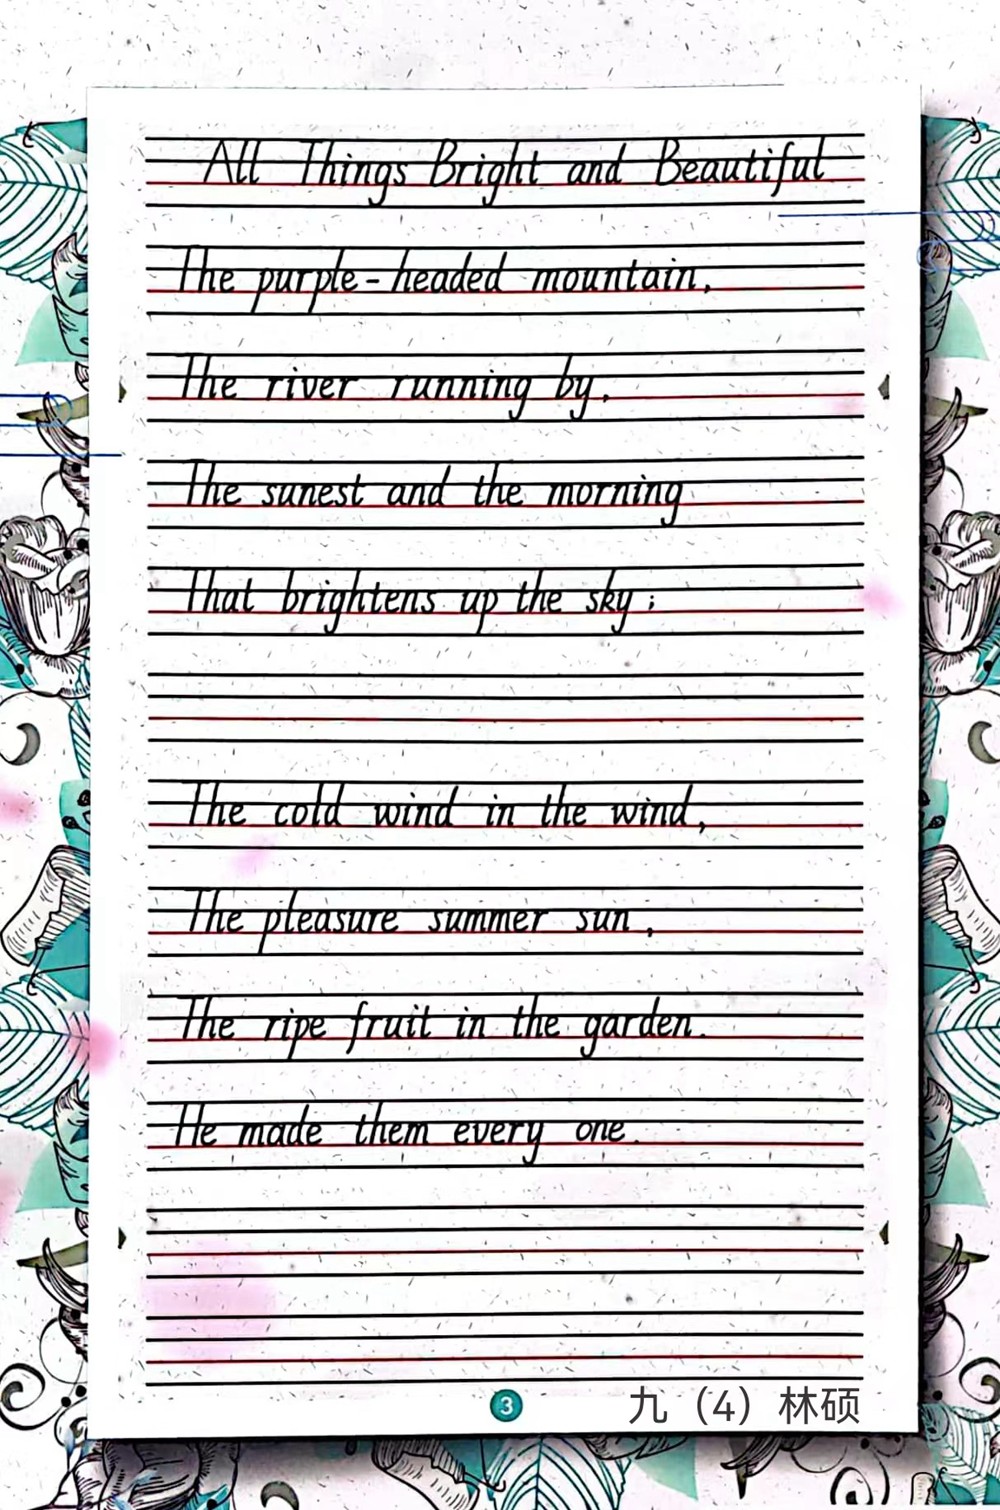 All Things Bright and Beautiful
The purple-headed mountain,
The river running by,
The sunest and the morning
That brightens up the sky;
The cold wind in the wind,
The pleasure summer sun,
The ripe fruit in the garden.
He made them every one.
3
九（4）林硕